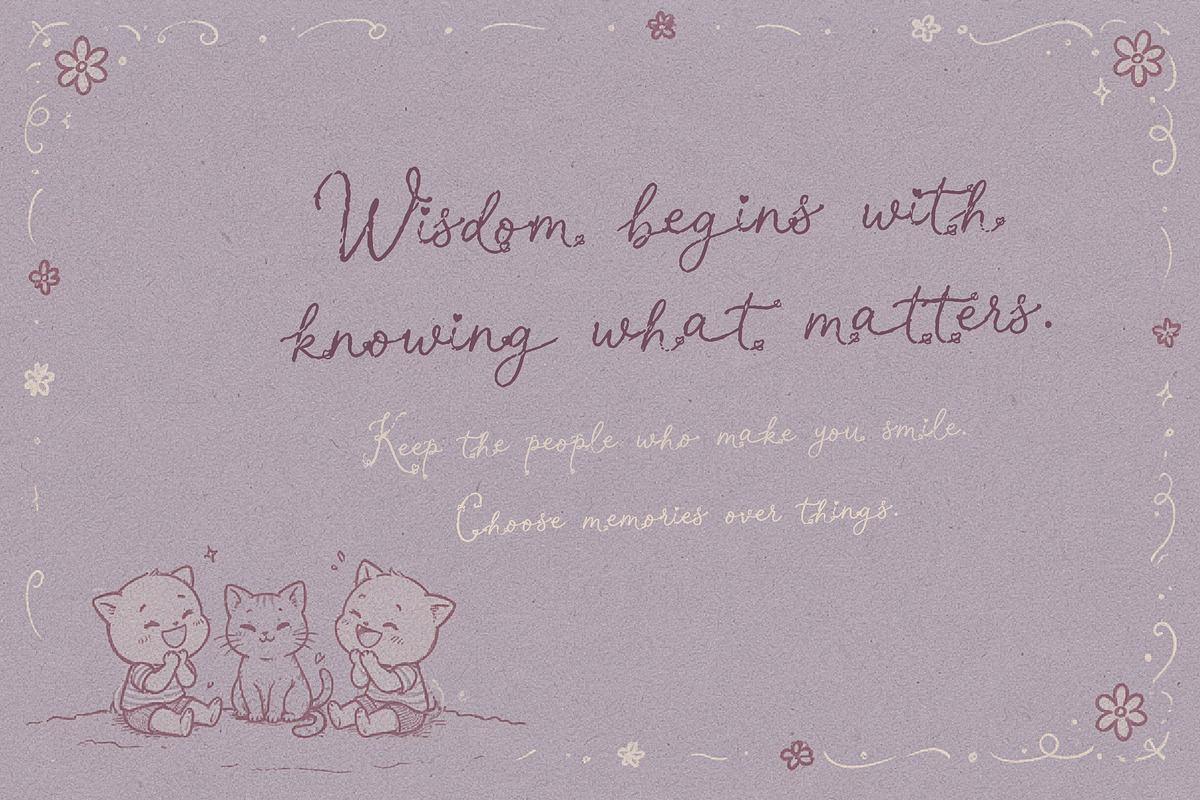 Wisdom begins with
knowing what matters.
Keep the people who make you smile.
Choose memories over things.